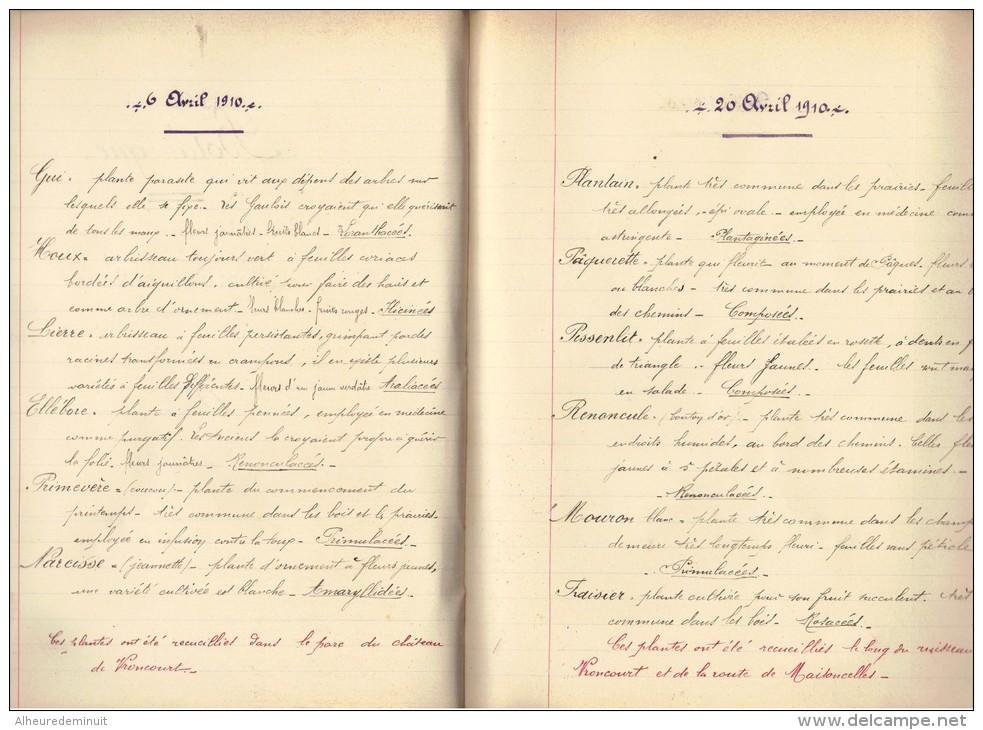 6 Avril 1910.
Gui. plante parasite qui vit aux dépens des arbres sur
lesquels elle se fixe. Les Gaulois croyaient qu'elle guérissait
de tous les maux. - fleurs jaunâtres - fruits blancs - Loranthacées.
Houx = arbrisseau toujours vert à feuilles coriaces
bordées d'aiguillons, cultivé pour faire des haies et
comme arbre d'ornement - fleurs blanches - fruits rouges - Ilicinées
Lierre = arbrisseau à feuilles persistantes, grimpant par des
racines transformées en crampons, il en existe plusieurs
variétés à feuilles différentes. fleurs d'un jaune verdâtre Araliacées
Ellébore = plante à feuilles pennées, employée en médecine
comme purgatif. Les Anciens la croyaient propre à guérir
la folie. fleurs jaunâtres - Renonculacées.
Primevère = (coucou) - plante du commencement du
printemps - très commune dans les bois et les prairies.
employée en infusion contre la toux - Primulacées.
Narcisse = (jeannette) - plante d'ornement à fleurs jaunes,
une variété cultivée est blanche - Amaryllidées.
Ces plantes ont été recueillies dans le parc du château
de Vroncourt.
20 Avril 1910.
Plantain. plante très commune dans les prairies - feuill
très allongées, épi ovale. - employée en médecine com
astringente - Plantaginées.
Pâquerette. plante qui fleurit au moment de Pâques. fleurs
ou blanches - très commune dans les prairies et au b
des chemins - Composées.
Pissenlit. plante à feuilles étalées en rosette, à dents en f
de triangle .. fleurs jaunes. les feuilles sont man
en salade - Composées.
Renoncule. (bouton d'or) - plante très commune dans les
endroits humides, au bord des chemins. belles fle
jaunes à 5 pétales et à nombreuses étamines. -
Renonculacées.
Mouron blanc = plante très commune dans les champ
demeure très longtemps fleuri - feuilles sans pétiole
Primulacées.
Fraisier. plante cultivée pour son fruit succulent. très
commune dans les bois - Rosacées.
Ces plantes ont été recueillies le long du ruisseau
Vroncourt et de la route de Maisoncelles -
Alheuredeminuit
www.delcampe.net